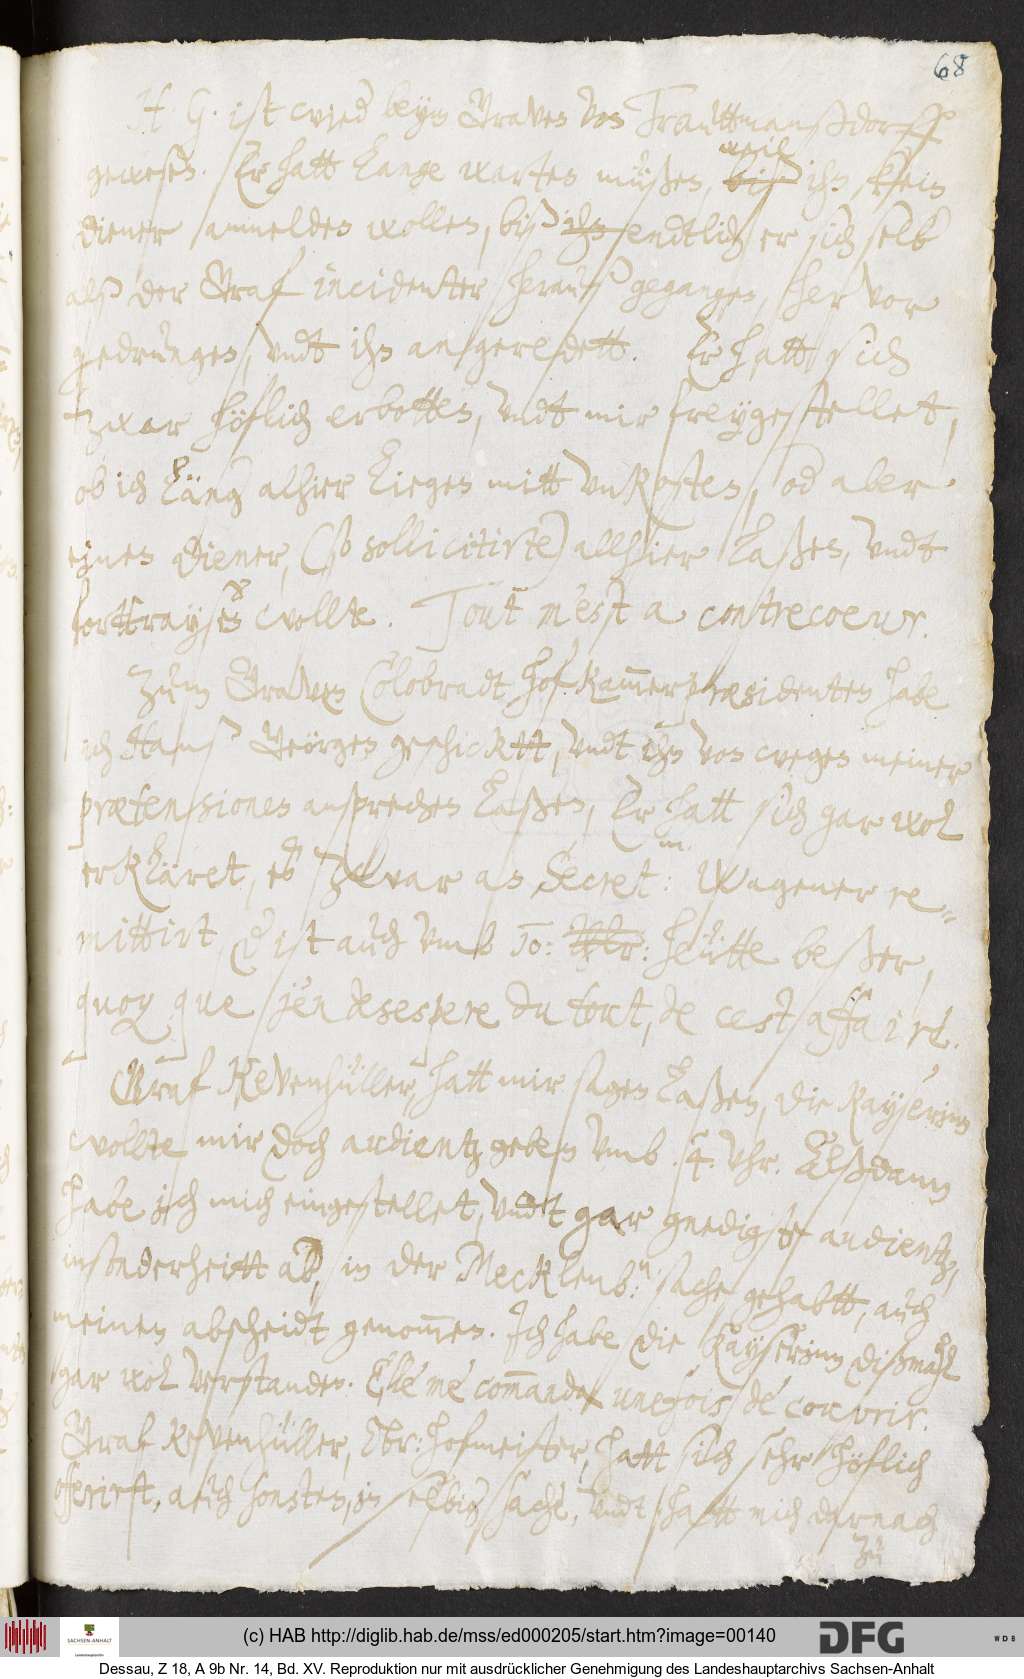 68
H. G. ist wied beym Graven von Trauttmanßdorff
gewesen. Er hatt lange warten müßen, weil biß ihn kein
diener anmelden wollen, biß ihn endtlich er sich selb
alß der Graf incidenter herauß gegangen, hervor
gedrungen, undt ihn angeredett. Er hatt sich
zwar höflich erbotten, undt mir freygestellet,
ob ich läng alhier liegen mitt unkosten, od aber
einen diener, (so sollicitirte) allhier laßen, undt
fortt raysen wollte. Tout m'est a contrecoeur.
Zum Graven Colobradt hofkammerpræsidenten habe
ich Hanß Geörgen geschicktt, undt ihn von wegen meiner
prætensionen ansprechen laßen, Er hatt sich gar wol
erkläret, es zwar an Secret: Wagener re-
mittirt, Es ist auch umb 10: Thlr: heütte beßer,
quoy que j'en desespere du tout, de cest affaire.
Graf Kevenhüller, hatt mir sagen laßen, die Kayserinn
wollte mir doch audientz geben umb 4. Uhr. Alßdann
habe ich mich eingestellet, undt gar gnedigste audientz,
insonderheitt ab, in der Mecklenb:n sache gehabtt, auch
meinen abscheidt genommen. Ich habe die Kayserinn dißmahl
gar wol verstanden. Elle me commanda une fois de couvrir.
Graf Kevenhüller, Obr: hofmeister, hatt sich sehr höflich
offerirt, auch sonsten, in selbiger sache, undt hatt mich darnach
zu
(c) HAB http://diglib.hab.de/mss/ed000205/start.htm?image=00140
SACHSEN-ANHALT
DFG
WDB
Dessau, Z 18, A 9b Nr. 14, Bd. XV. Reproduktion nur mit ausdrücklicher Genehmigung des Landeshauptarchivs Sachsen-Anhalt